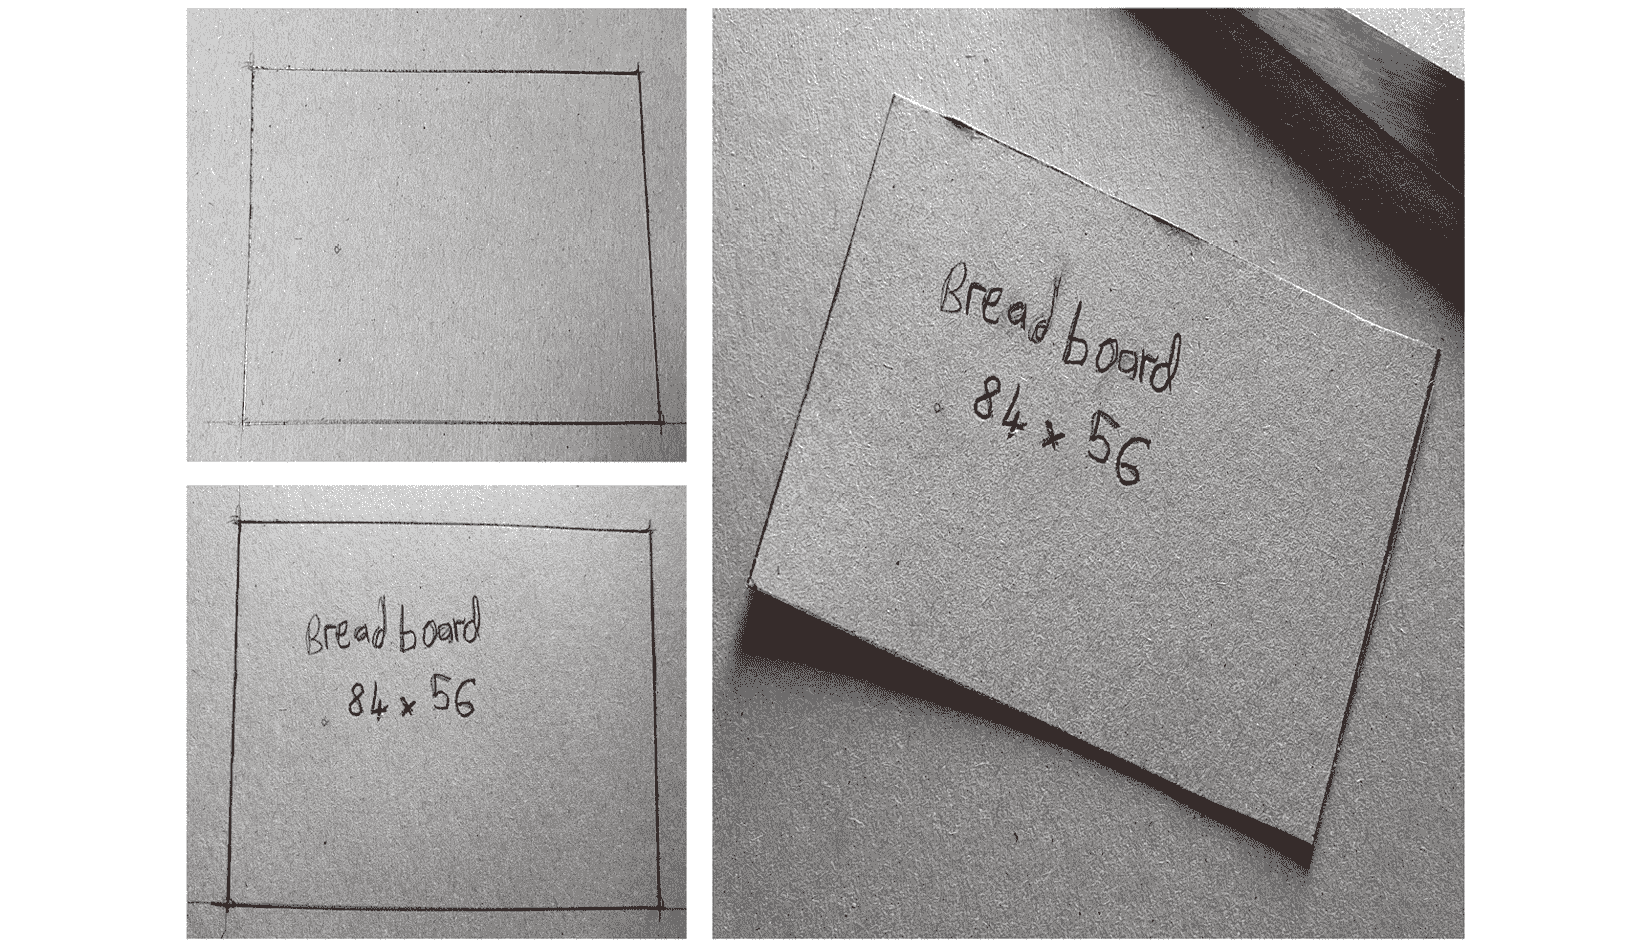 Bread board
84 x 56
Bread board
84 x 56